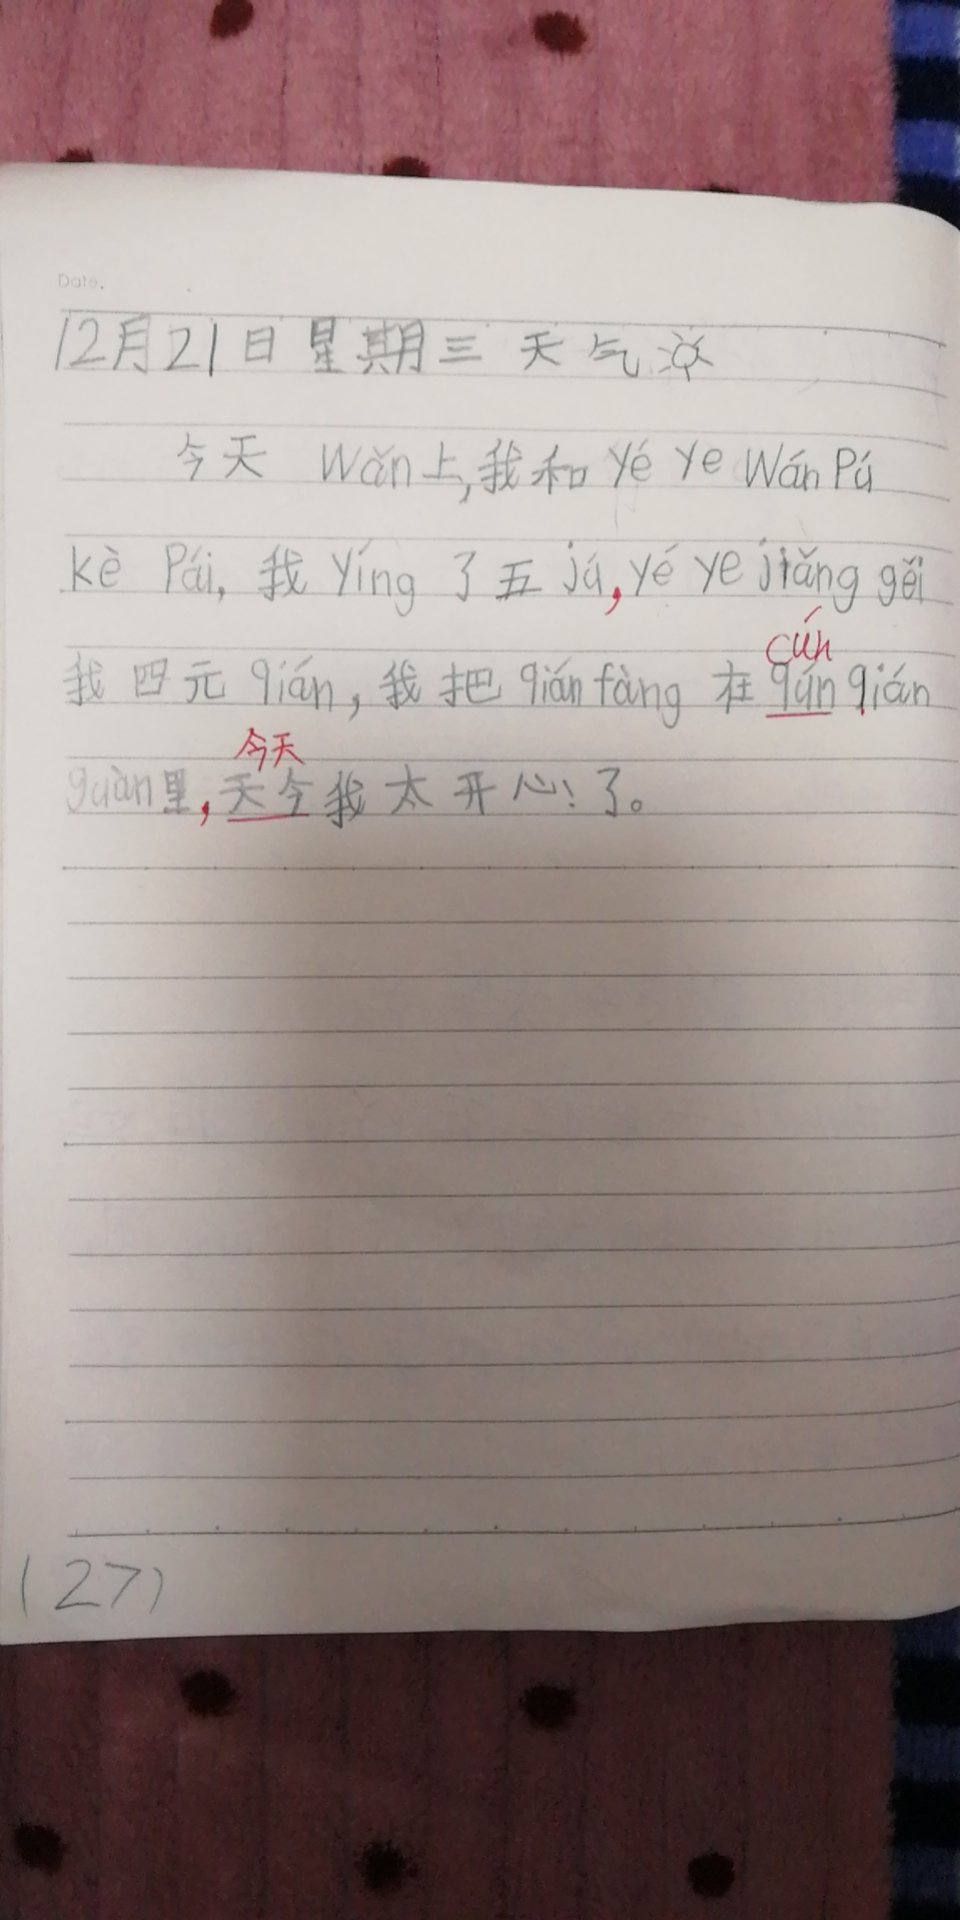 Date.
12月21日星期三 天气
今天 Wǎn上,我和 yé ye Wán Pú
kè Pái, 我 Yíng 了五 jú,yé ye jiǎng gěi
cún
我四元 qián, 我把 qián fàng 在 qún qián
今天
guàn里,天今我太开心!了。
(27)